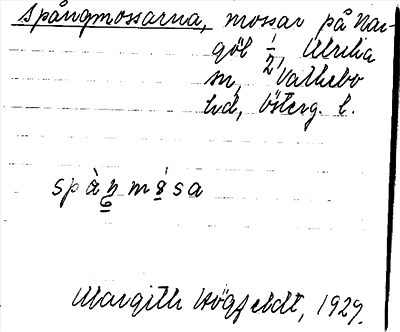 Spångmossarna, mossar på Nar-
göl 1/2, Ulrika
sn, Valkebo
hd, Österg. l.
Margith Högfeldt, 1929.